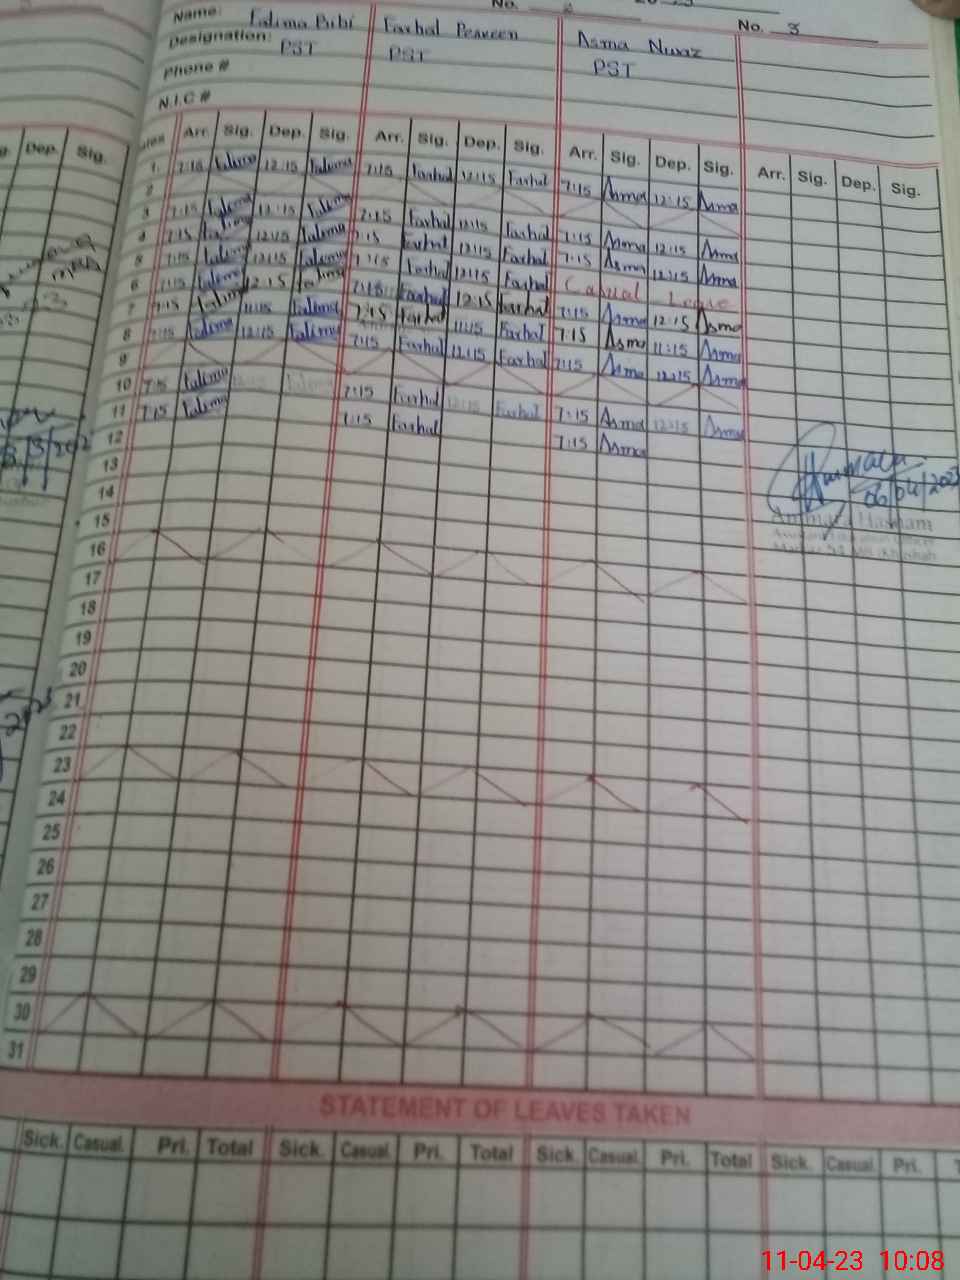 No. 2
No. 3
Name: Fatima Bibi Farhat Perveen Asma Nwaz
Designation: PST PST PST
Phone #
N.I.C #
Dep. Sig. Arr. Sig. Dep. Sig. Arr. Sig. Dep. Sig. Arr. Sig. Dep. Sig. Arr. Sig. Dep. Sig.
1 7:15 Fatima 12:15 Fatima 7:15 Farhat 12:15 Farhat 7:15 Asma 12:15 Asma
2
3 7:15 Fatima 12:15 Fatima 7:15 Farhat 12:15 Farhat 7:15 Asma 12:15 Asma
4 7:15 Fatima 12:15 Fatima 7:15 Farhat 12:15 Farhat 7:15 Asma 12:15 Asma
5 7:15 Fatima 12:15 Fatima 7:15 Farhat 12:15 Farhat Casual Leave
6 7:15 Fatima 12:15 Fatima 7:15 Farhat 12:15 Farhat 7:15 Asma 12:15 Asma
7 7:15 Fatima 11:15 Fatima 7:15 Farhat 11:15 Farhat 7:15 Asma 11:15 Asma
8 7:15 Fatima 12:15 Fatima 7:15 Farhat 12:15 Farhat 7:15 Asma 12:15 Asma
9
10 7:15 Fatima 7:15 Farhat 12:15 Farhat 7:15 Asma 12:15 Asma
11 7:15 Fatima 7:15 Farhat 7:15 Asma
12
13
14
15
16
17
18
19
20
21
22
23
24
25
26
27
28
29
30
31
06/04/2023
STATEMENT OF LEAVES TAKEN
Sick. Casual. Pri. Total Sick. Casual. Pri. Total Sick. Casual. Pri. Total Sick. Casual. Pri.
11-04-23 10:08